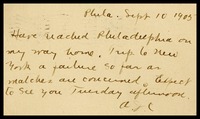 Phila. Sept 10 1905
Have reached Philadelphia on
my way home. Trip to New
York a failure so far as
matches are concerned. Expect
to see you Tuesday afternoon.